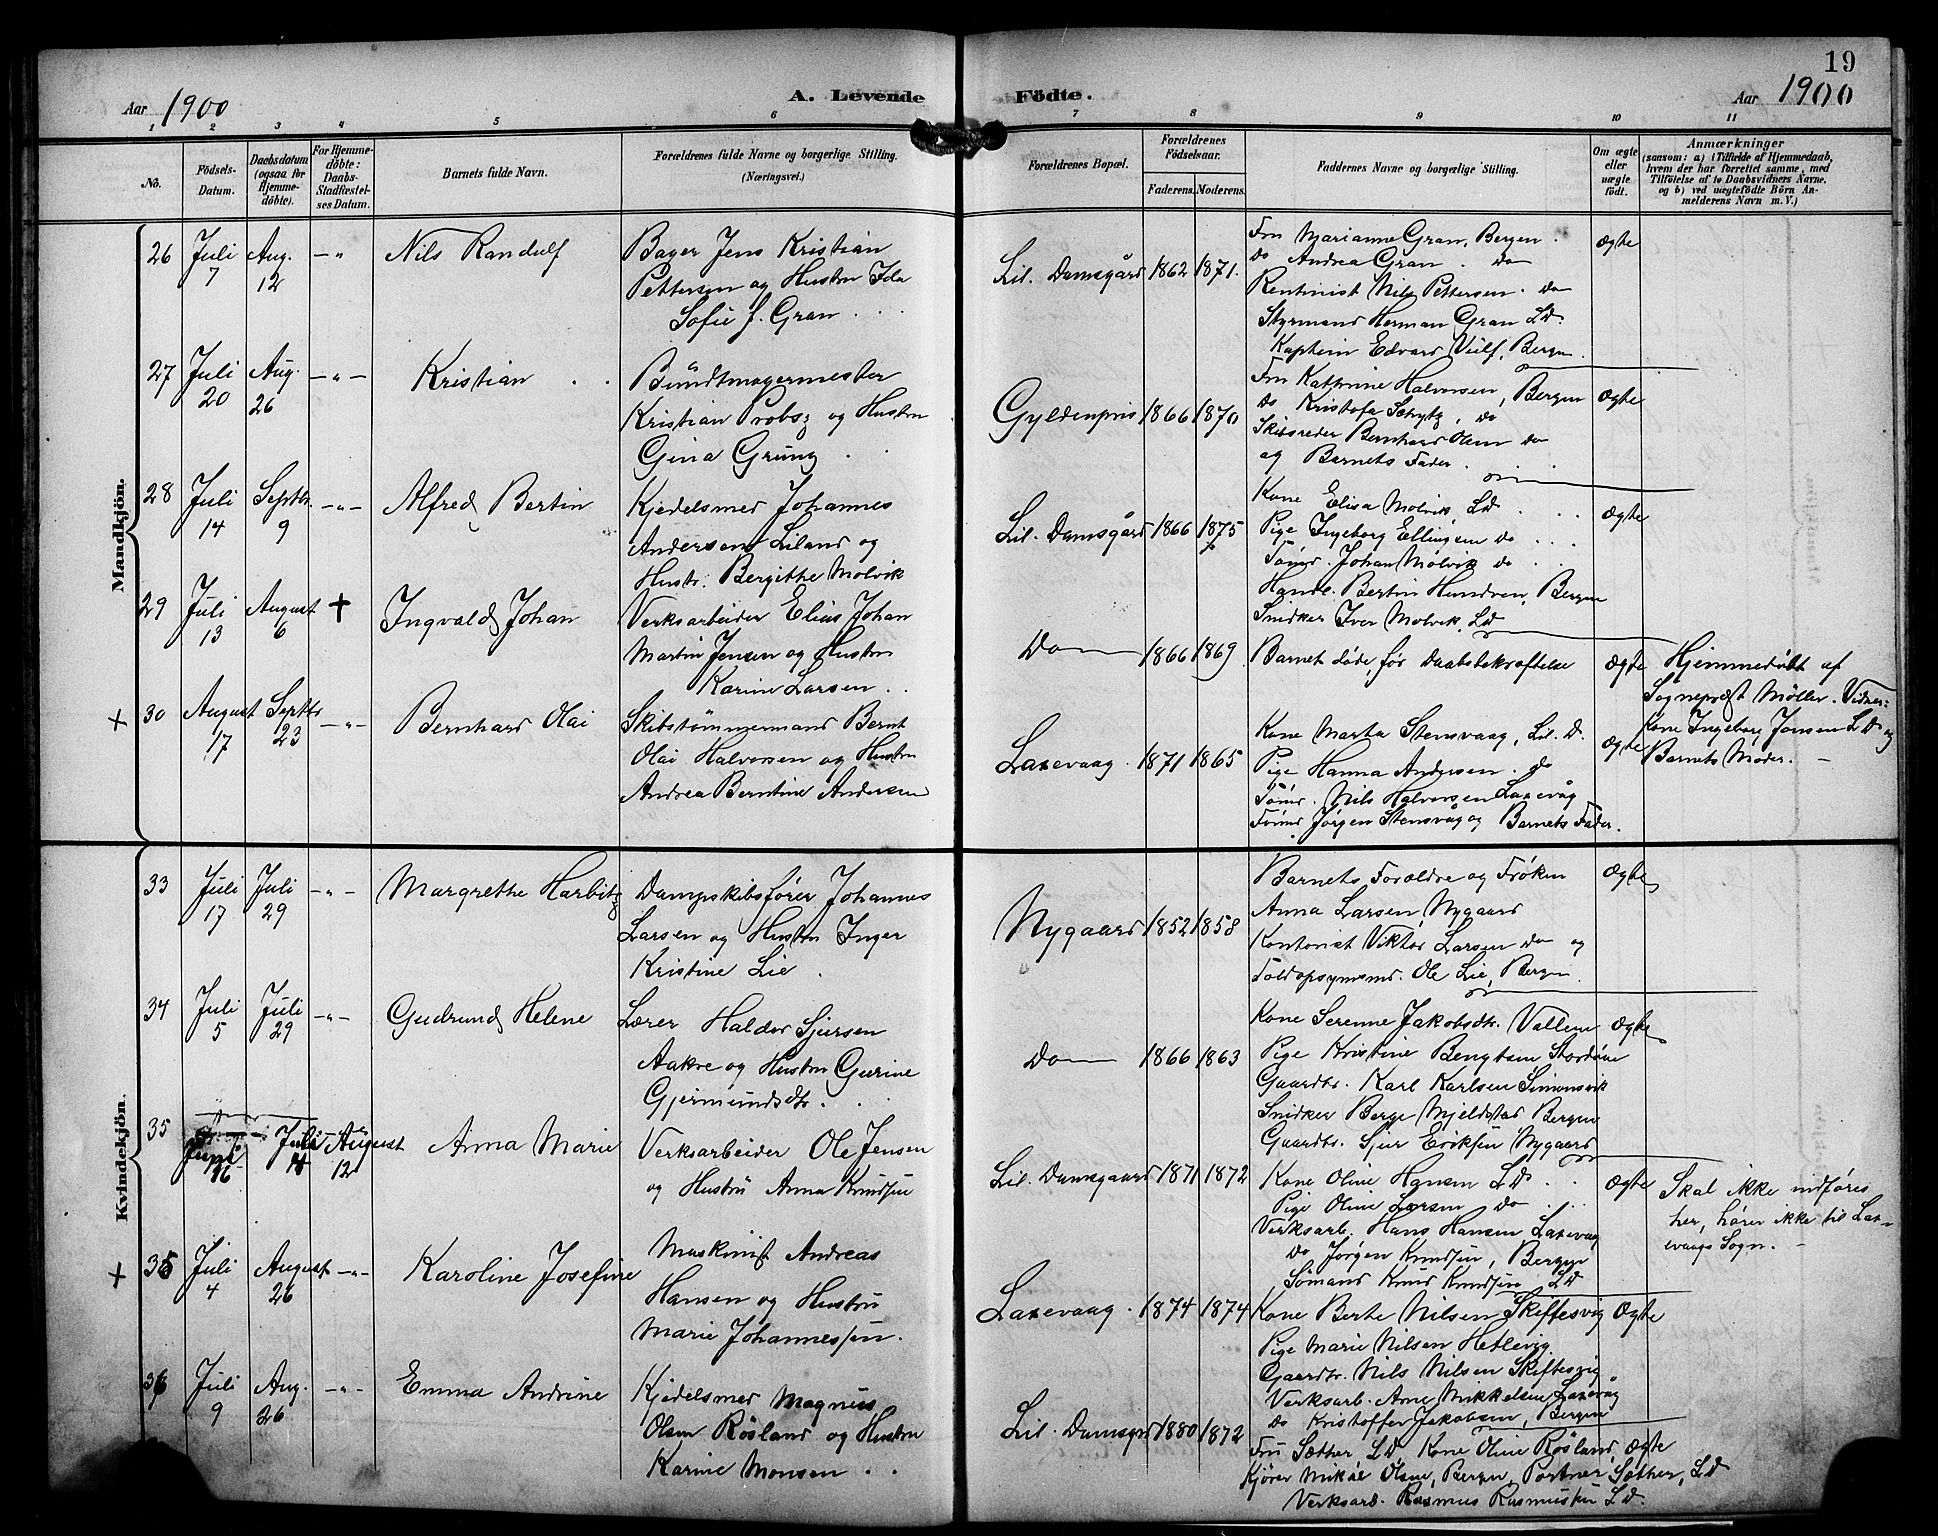 19
Aar 1900
A. Levende Födte.
Aar 1900
1 2 3 4 5 6 7 8 9 10 11
No.
Födsels-
Datum.
Daabsdatum
(ogsaa for
Hjemme-
döbte).
For Hjemme-
döbte:
Daabs-
Stadfæstel-
ses Datum.
Barnets fulde Navn.
Forældrenes fulde Navne og borgerlige Stilling.
(Næringsvei.)
Forældrenes Bopæl.
Forældrenes
Födselsaar.
Faderens. Moderens.
Faddernes Navne og borgerlige Stilling.
Om ægte
eller
uægte
født.
Anmærkninger
(saasom: a) i Tilfælde af Hjemmedaab,
hvem der har forrettet samme, med
Tilföielse af to Daabsvidners Navne,
og b) ved uægtefödte Börn An-
melderens Navn m. V.)
Mandkjön.
26 Juli 7 Aug. 12 — „
Nils Randulf
Bager Jens Kristian
Pettersen og Hustru Ida
Sofie J. Gran
Lil. Damsgård 1862 1871.
Fru Marianne Gran, Bergen.
do Andrea Gran. do
Rentenist Nils Pettersen. do
Styrmand Herman Gran LD.
Kaptein Edvard Bergen.
Ægte
27 Juli 20 Aug. 26 — „ —
Kristian
Bundtmagermester
Kristian Probsz og Hustru
Gina Grung
Gyldenpris 1866 1870
Fru Kathrine Halvorsen, Bergen
do Kristofa do
Skibsreder Bernhard Olsen do
og Barnets Fader.
Ægte
28 Juli 14 Septbr. 9 — „ —
Alfred Bertin
Kjedelsmed Johannes
Andersen Liland og
Hustr. Bergithe Molvik
Lil. Damsgård 1866 1875
Kone Elisa Molvik, LD
Pige Ingeborg Ellingsen do
Tømr. Johan Molvik do
Handl. Bertin Hundven, Bergen
Snidker Iver Molvik, LD
Ægte
29 Juli 13 August 6 †
Ingvald Johan
Verksarbeider Elias Johan
Martin Jensen og Hustru
Karine Larsen
Do 1866 1869
Barnet døde før Daabsbekræftelse
Ægte
Hjemmedøbt af
Sognepræst Møller. Vidner:
Kone Ingeborg Jonsen LD og
Barnets Moder. —
+ 30 August 17 Septbr 23 — „ —
Bernhard Olai
Skibstømmermand Bernt
Olai Halvorsen og Hustru
Andrea Berntine Andersen
Laxevaag 1871 1865
Kone Marta Stensvaag, Lil. D.
Pige Hanna Andersen. do
Tømr. Nils Halvorsen Laxevåg
Tømr Jørgen Stensvåg og Barnets Fader.
Ægte
Kvindekjön.
33 Juli 17 Juli 29 — „ —
Margrethe Harbitz
Dampskibsfører Johannes
Larsen og Hustru Inger
Kristine Lie
Nygaard 1852 1858
Barnets Forældre og Frøken
Anna Larsen, Nygaard
Kontorist Viktor Larsen do og
Toldopsynsmd. Ole Lie, Bergen
Ægte
34 Juli 5 Juli 29 — „ —
Gudrund Helene
Lærer Haldor Sjursen
Aakre og Hustru Gurine
Gjermundsdtr.
Do 1866 1863
Kone Serenne Jakobsdtr. Vallem
Pige Kristine Bengtsen
Gaardbr. Karl Karlsen Simonsvik
Snidker Berge Mjeldstad Bergen
Gaardbr. Sjur Eriksen Nygaard
Ægte
35 Juni 16 Juli August 12
Anna Marie
Verksarbeider Ole Jensen
og Hustru Anna Knudsen
Lil. Damsgaard 1871 1872
Kone Oline Hansen LD
Pige Oline Larsen do
Verksarb. Hans Hansen Laxevag
do Jørgen Knudsen, Bergen
Sømand Knud Knudsen LD
Ægte
Skal ikke indføres
her, hører ikke til Lax-
evaags Sogn. —
+ 35 Juli 4 August 26 — „ —
Karoline Josefine
Maskinist Andreas
Hansen og Hustru
Marie Johannessen.
Laxevaag. 1874 1874
Kone Berte Nilsen Skiftesvig
Pige Marie Nilsen Hetlevig
Gaardbr. Nils Nilsen Skiftesvig
Verksarb. Arne Mikkelsen Laxevåg
do Kristoffer Jakobsen, Bergen
Ægte
36 Juli 9 Aug. 26 — „ —
Emma Andrine
Kjedelsmed Magnus
Olsen Røsland og Hustru
Karine Monsen
Lil. Damsgrd 1880 1872
Fru Sæther LD Kone Oline Røsland
Kjører Mikal Olsen, Bergen, Portner Sæther, LD
Verksarb. Rasmus Rasmussen LD.
Ægte